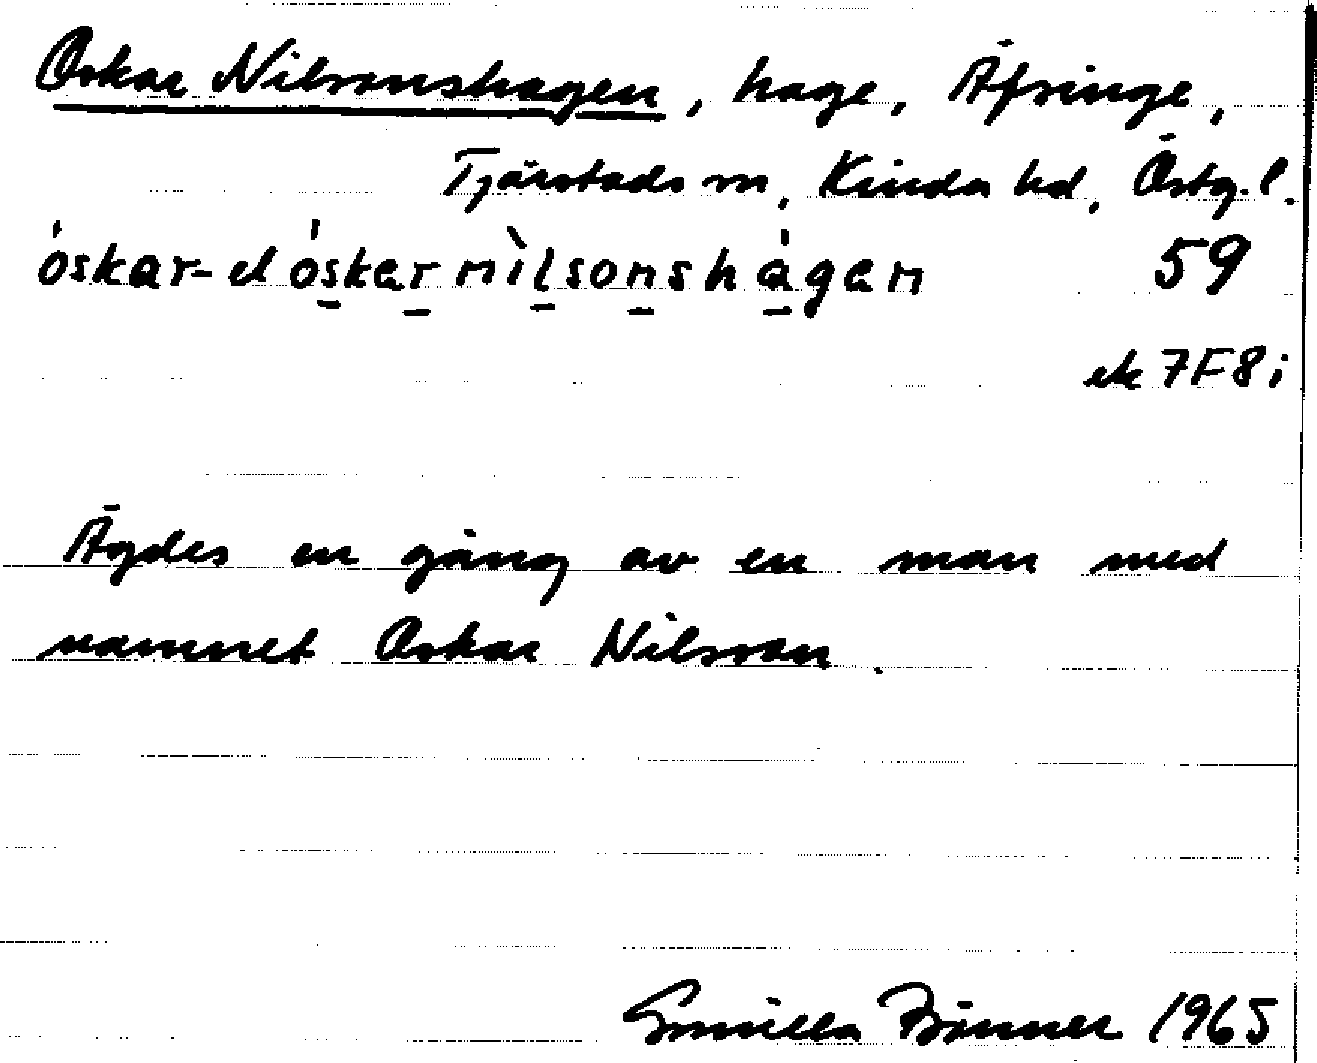 Oskar Nilsonshagen, hage, Äfsinge,
Tjärstads sn, Kinda hd, Östg. l.
óskar- el óskar nìlsonshágen 59
ek 7F8i
Ägdes en gång av en man med
namnet Oskar Nilsson.
Gunilla 1965